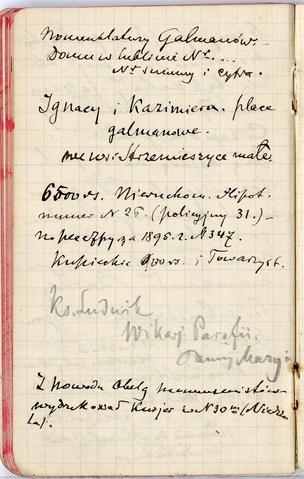 Nomenklatury Galmanów.
Domu w Lublinie Nr....
Nr summy i cyfra.
Ignacy i Kazimiera. place
galmanowe.
we wsi Strzemieszyce małe.
6500 rs. Nieruchom. Hipot.
numer N 25 (policyjny 31.) –
za 1895. r. N 347.
Kupieckie rs. i Towarzyst.
Ks. Ludwik
Wikarj Parafii.
Panny Maryi
Z powodu
wydrukował Kurjer w N 30